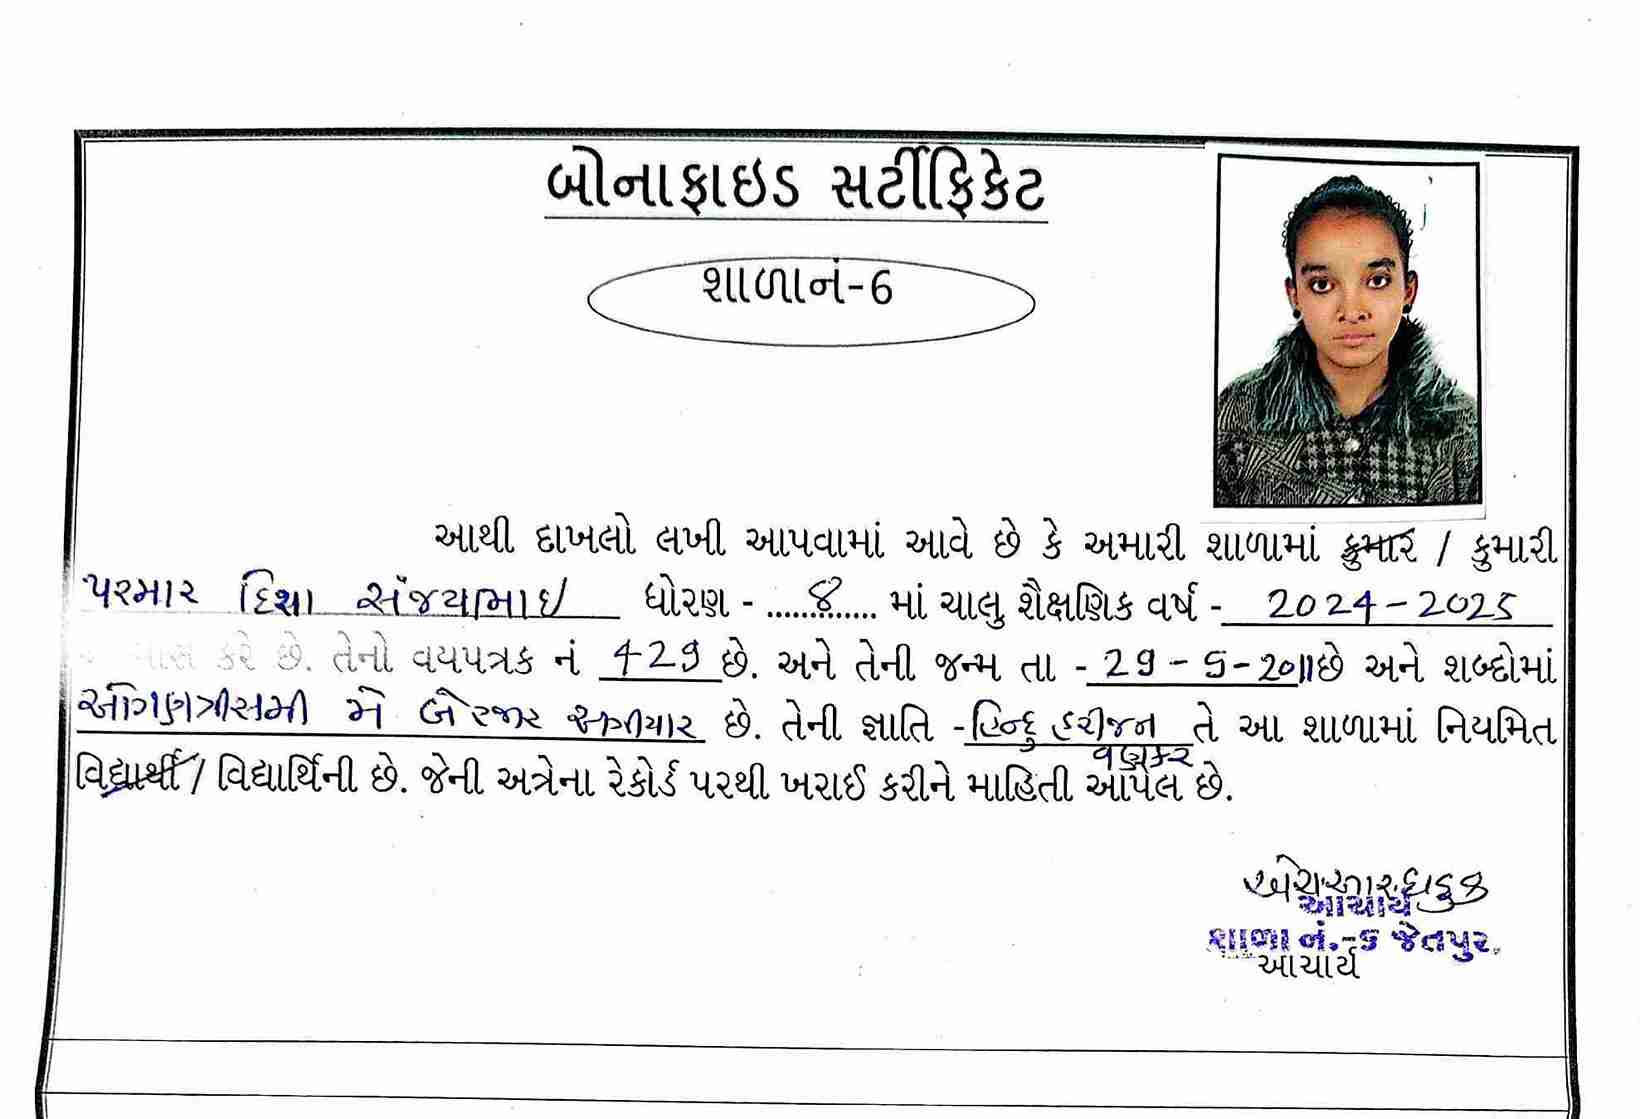 બોનાફાઇડ સર્ટીફિકેટ
શાળાનં-6
આથી દાખલો લખી આપવામાં આવે છે કે અમારી શાળામાં કુમાર / કુમારી
પરમાર દિશા સંજયભાઇ ધોરણ - ......૪...... માં ચાલુ શૈક્ષણિક વર્ષ - 2024-2025
કરે છે. તેનો વયપત્રક નં 429 છે. અને તેની જન્મ તા - 29-5-2011 છે અને શબ્દોમાં
ઓગણત્રીસમી મે બે હજાર અગીયાર છે. તેની જ્ઞાતિ - હિન્દુ હરીજન તે આ શાળામાં નિયમિત
વણકર
વિદ્યાર્થી / વિદ્યાર્થિની છે. જેની અત્રેના રેકોર્ડ પરથી ખરાઈ કરીને માહિતી આપેલ છે.
આચાર્ય
શાળા નં.-૬ જેતપુર.
આચાર્ય